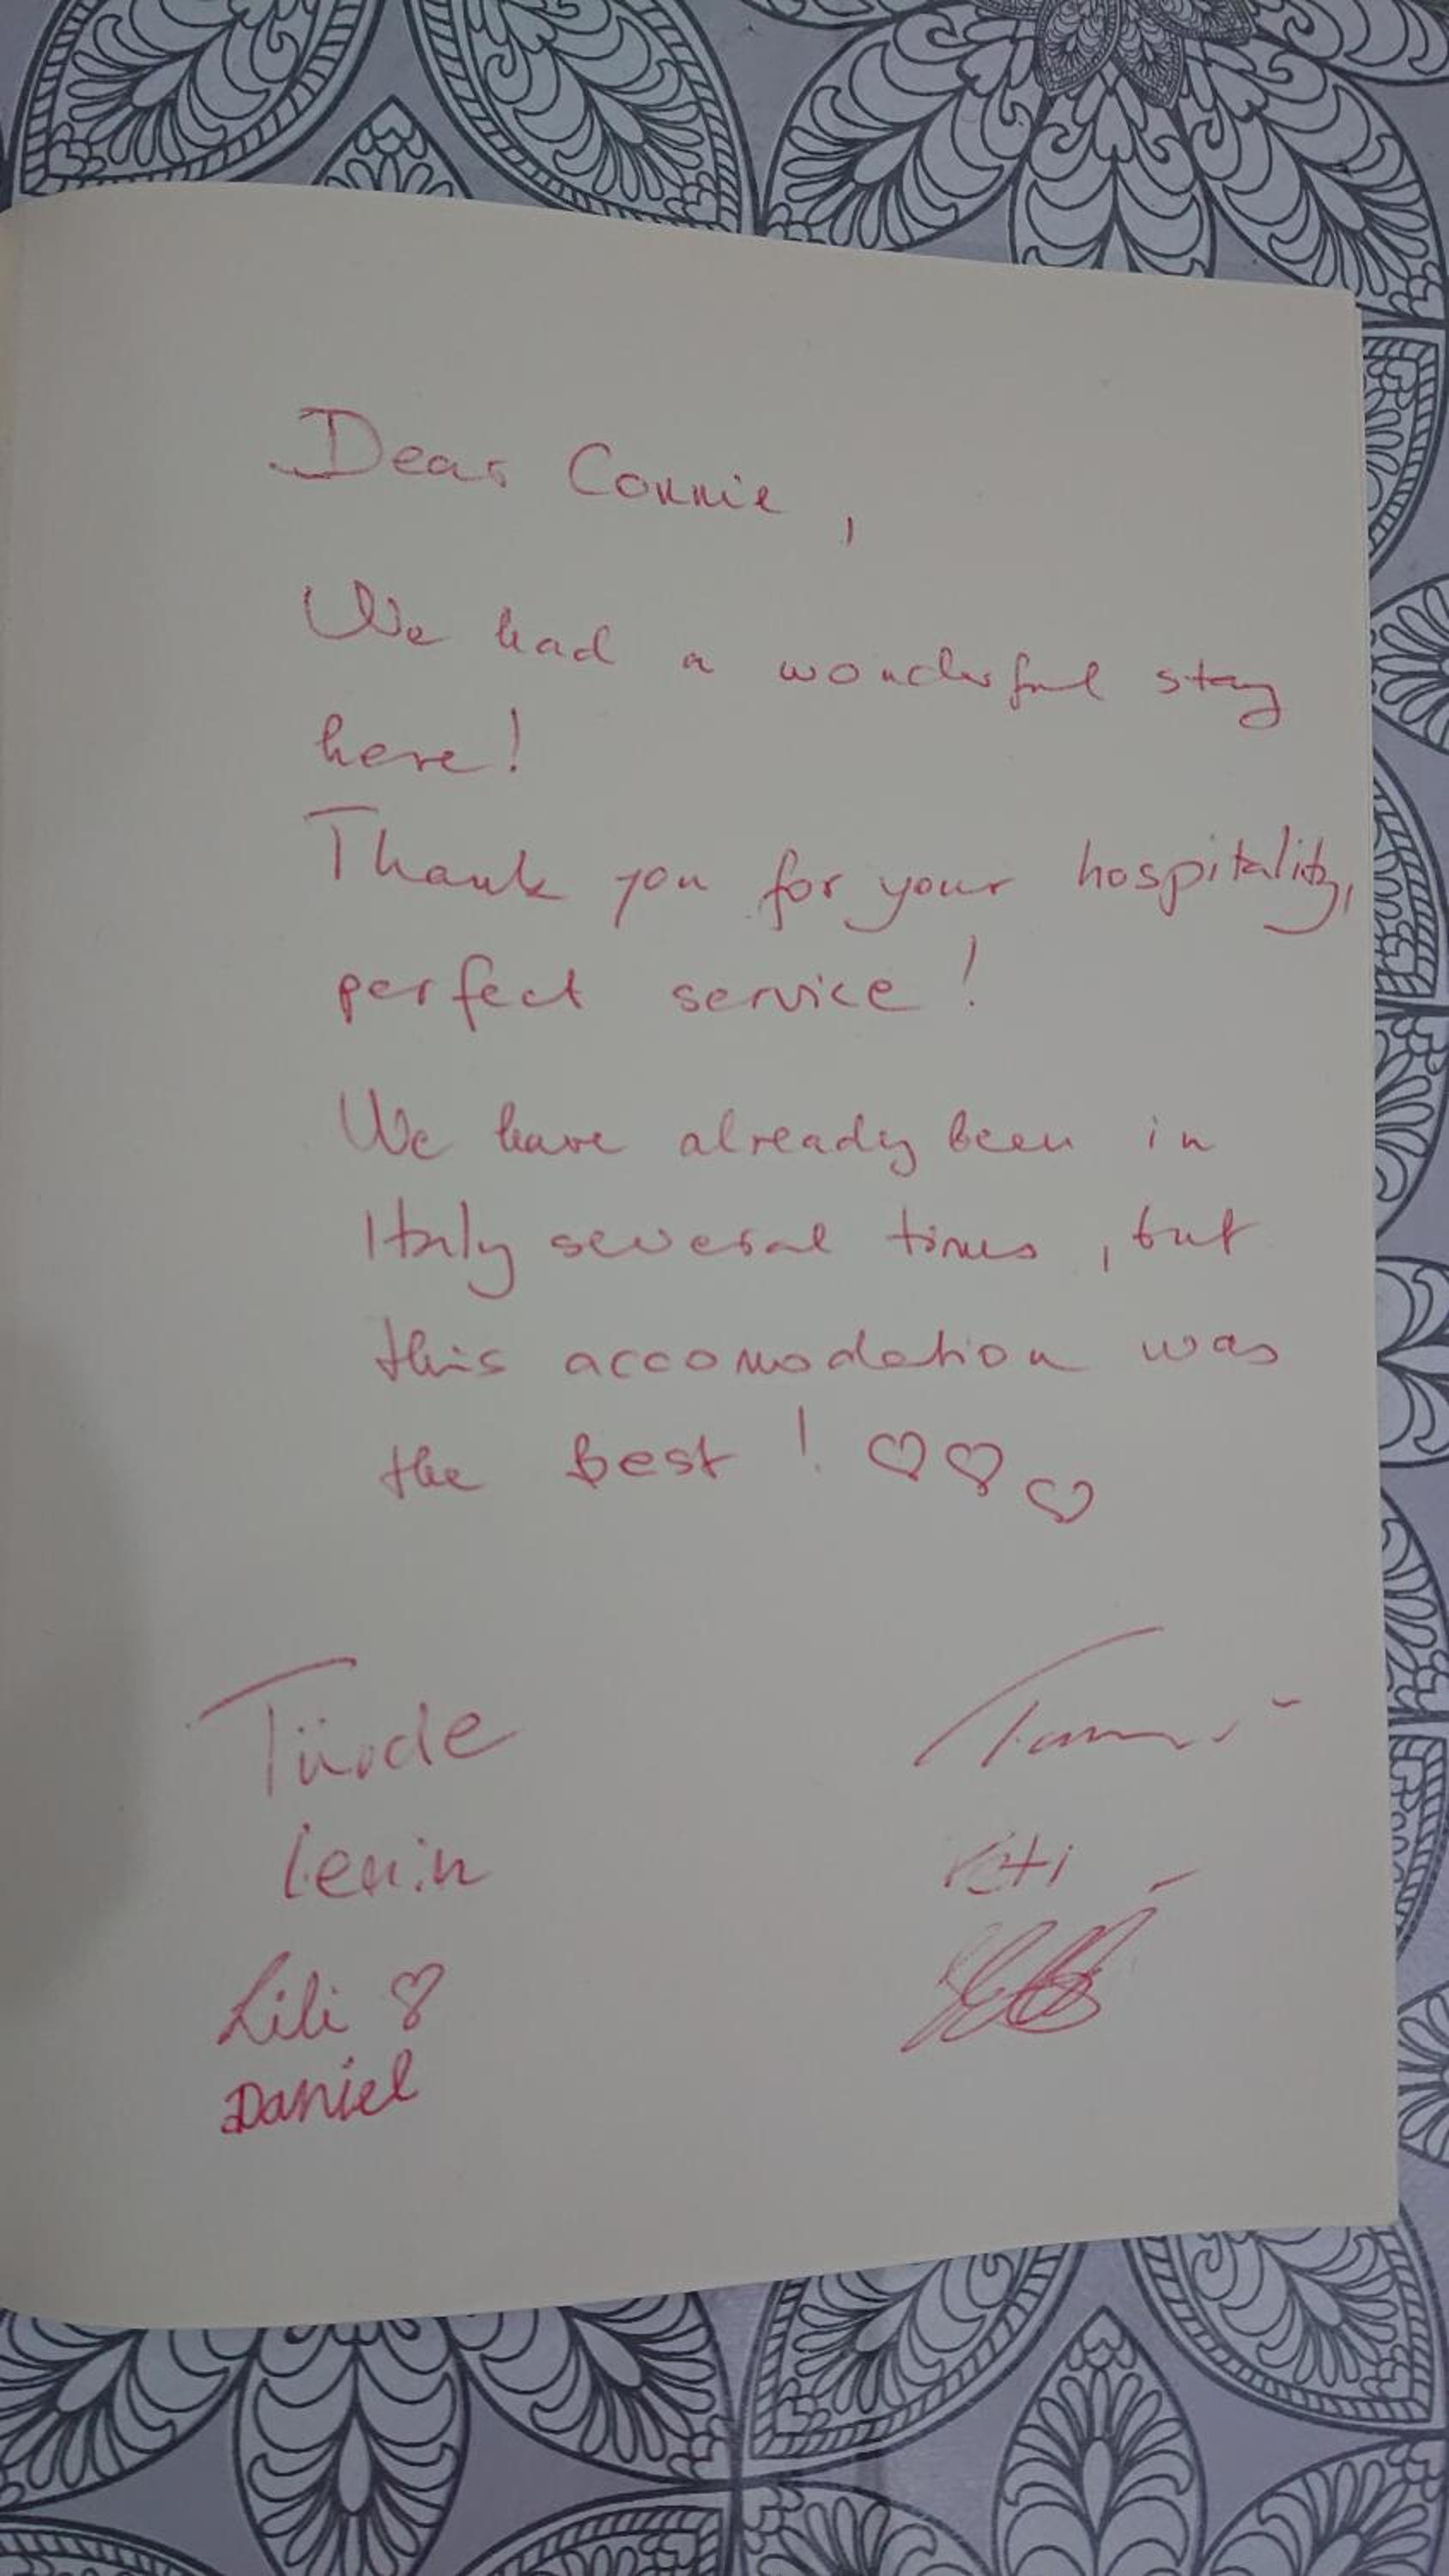 Dear Connie,
We had a wonderful stay
here!
Thank you for your hospitality,
perfect service!
We have already been in
Italy several times, but
this accomodation was
the best! ♡♡♡
Tünde
Lili ♡
Daniel